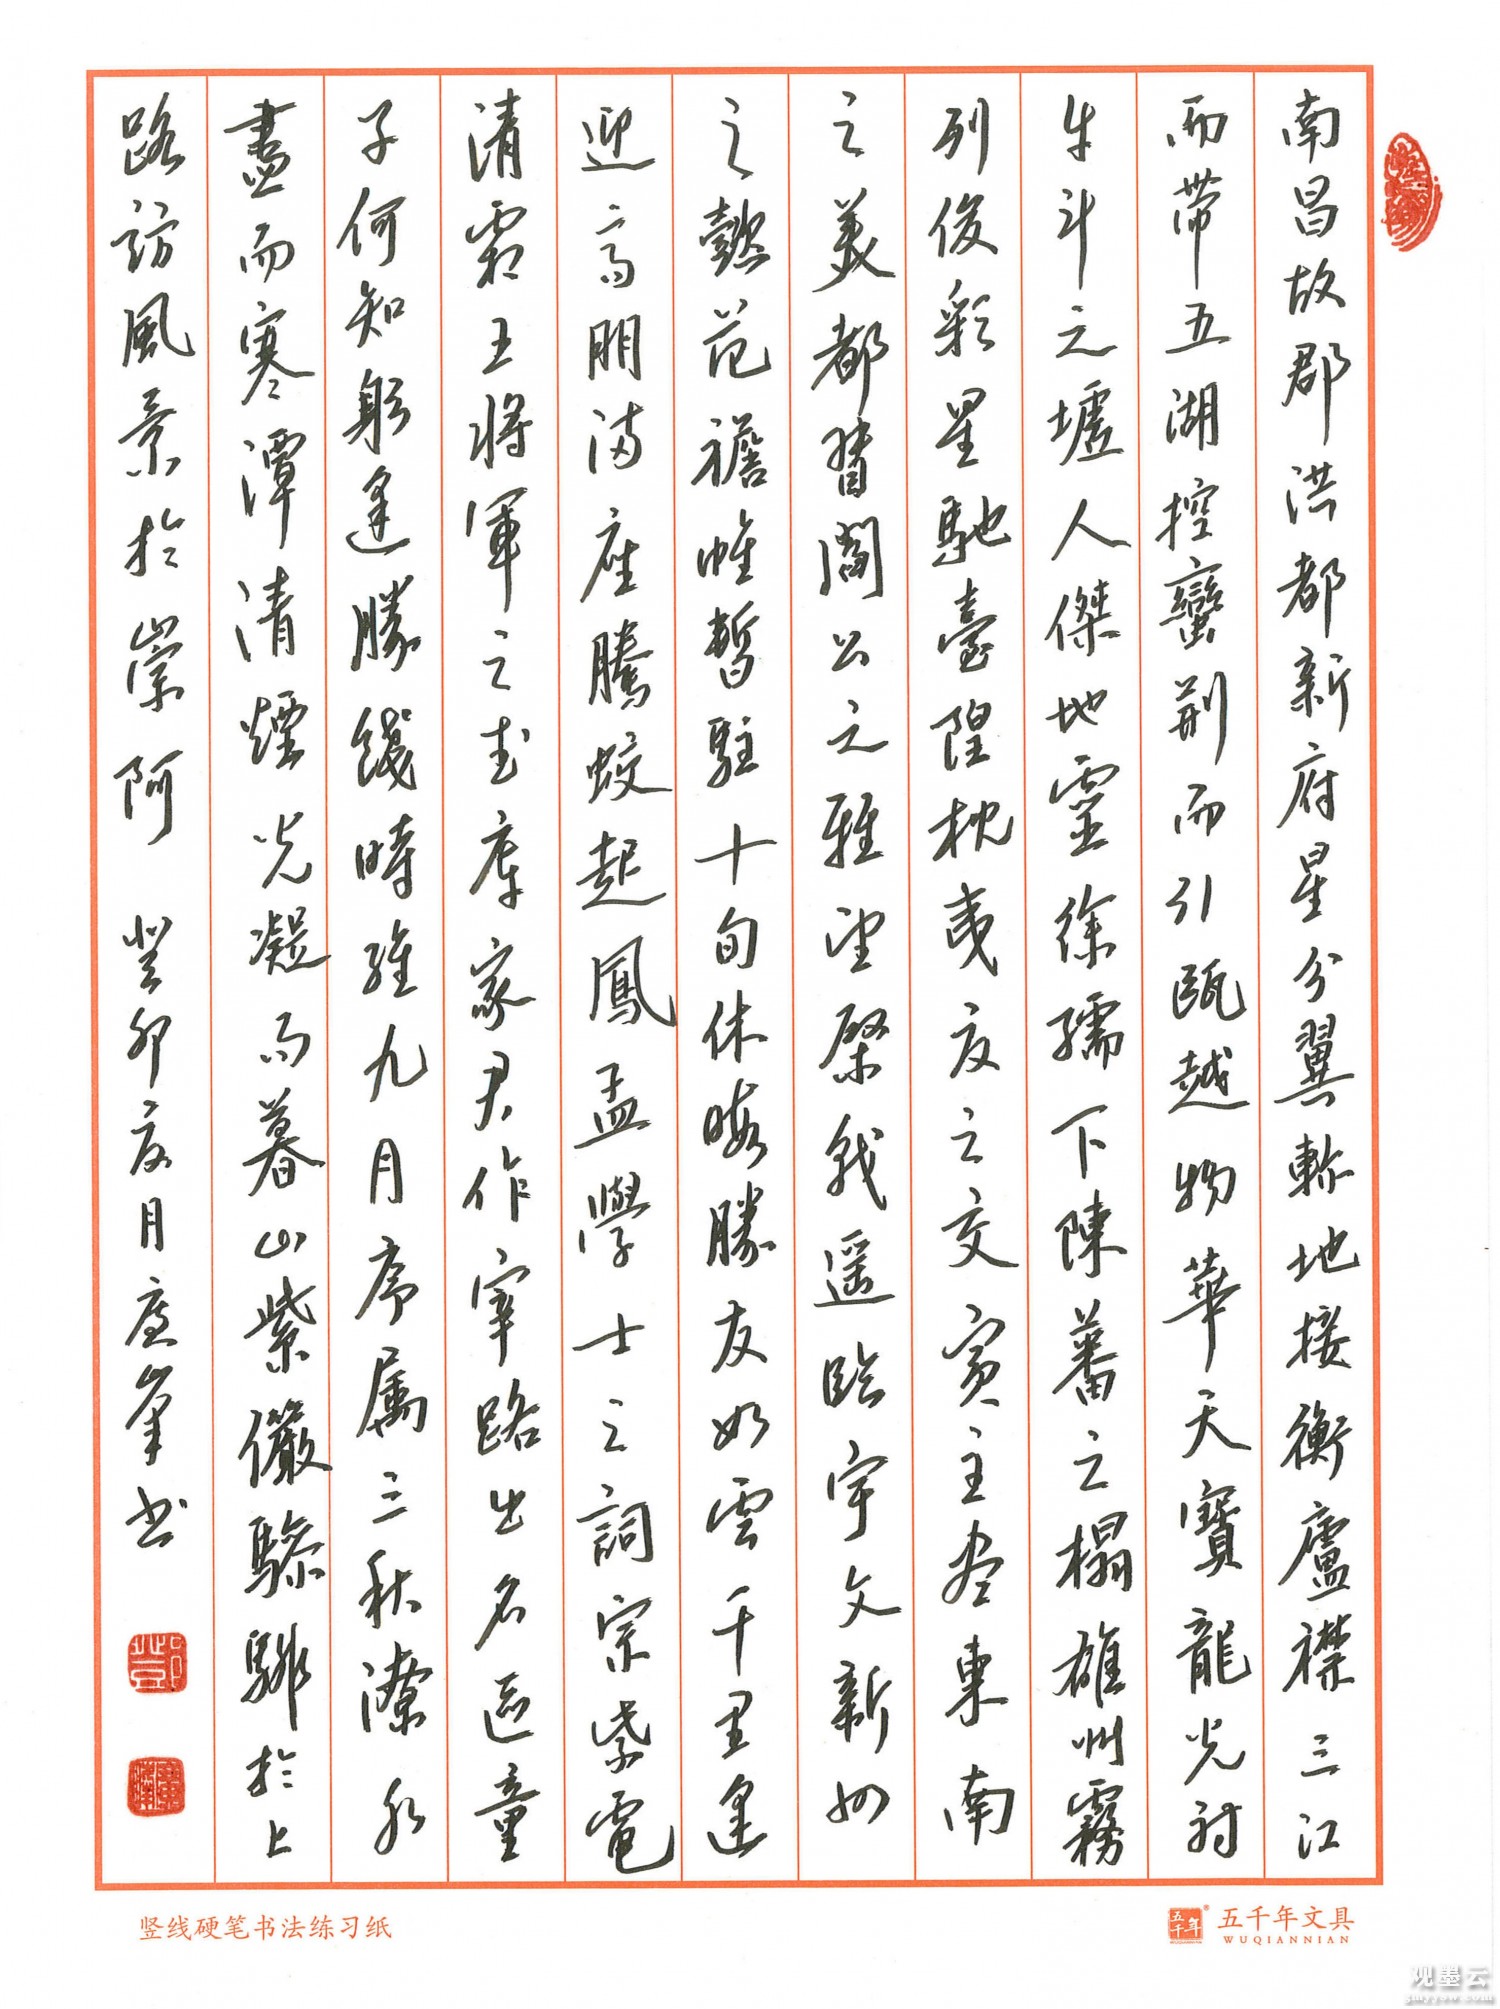 南昌故郡洪都新府星分翼軫地接衡廬襟三江
而帶五湖控蠻荊而引甌越物華天寶龍光射
牛斗之墟人傑地靈徐孺下陳蕃之榻雄州霧
列俊彩星馳臺隍枕夷夏之交賓主盡東南
之美都督閻公之雅望棨戟遥臨宇文新州
之懿范襜帷暫駐十旬休暇勝友如雲千里逢
迎高朋滿座騰蛟起鳳孟學士之詞宗紫電
清霜王將軍之武庫家君作宰路出名區童
子何知躬逢勝餞時維九月序屬三秋潦水
盡而寒潭清煙光凝而暮山紫儼驂騑於上
路訪風景於崇阿 癸卯夏月峯书
竖线硬笔书法练习纸
五千年文具
WUQIANNIAN
观墨云
gmyyow.com